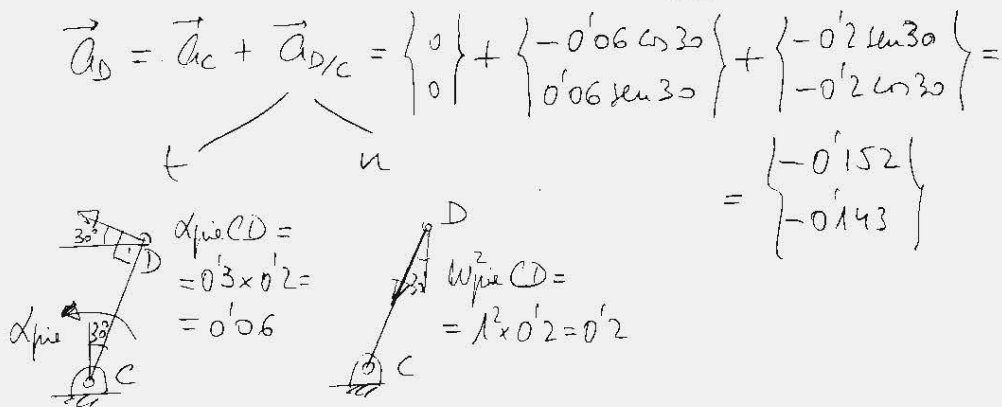 a⃗_D = a⃗_C + a⃗_{D/C} = {0 0} + {-0'06 cos 30 0'06 sen 30} + {-0'2 sen 30 -0'2 cos 30} =
t n
= {-0'152 -0'143}
30° D α_pie CD =
= 0'3 x 0'2 =
= 0'06
α_pie 30° C
D
30 ω²_pie CD =
= 1² x 0'2 = 0'2
C